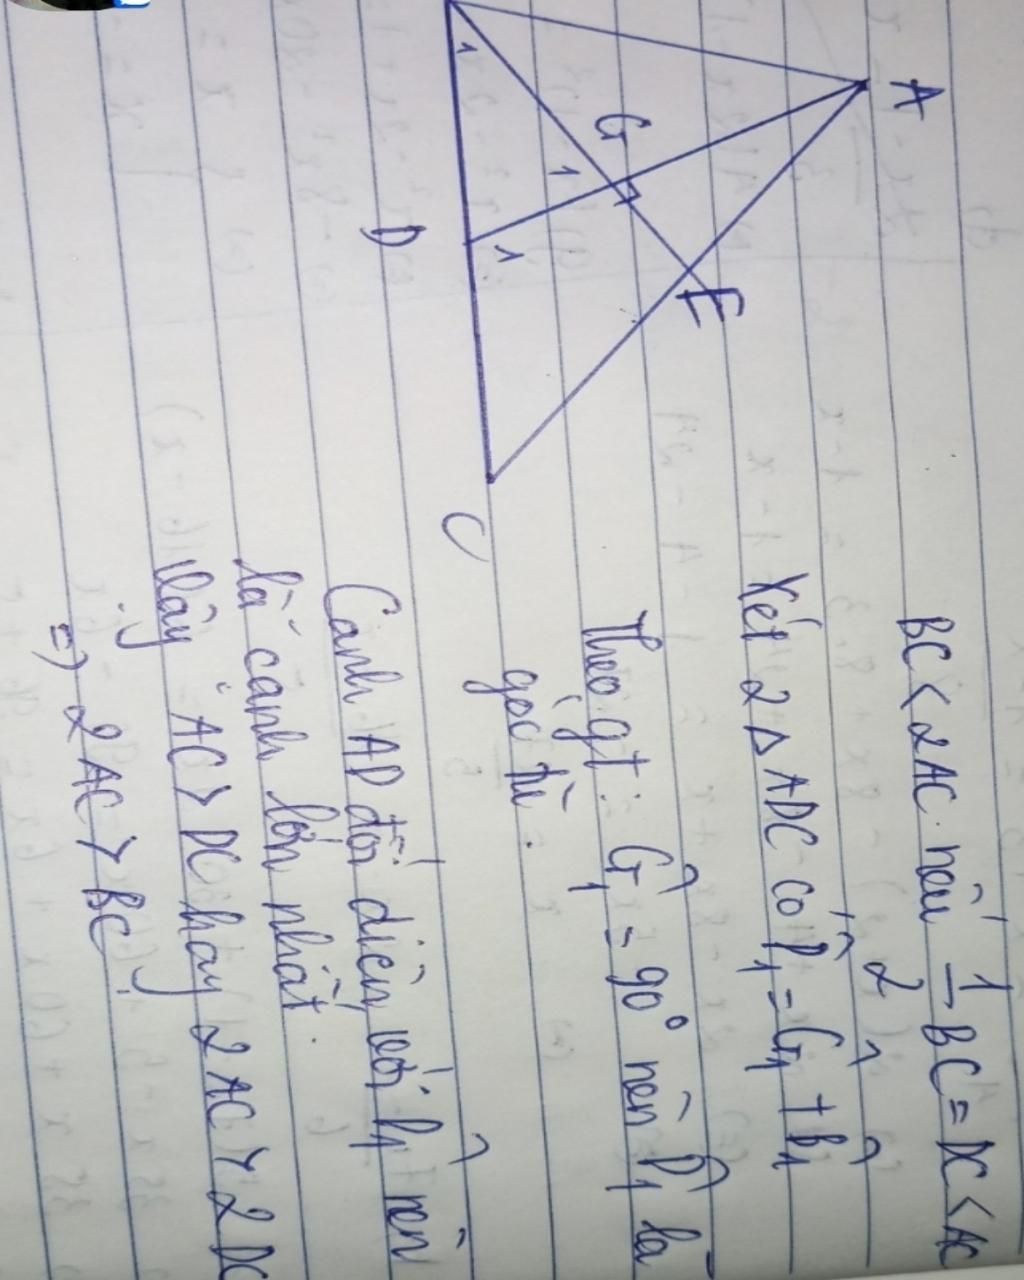 A
G
1
1
1
D
E
C
BC < 2AC nếu 1/2 BC = DC < AC
Xét 2 Δ ADC có D̂₁ = Ĝ₁ + B̂₁
Theo gt: Ĝ₁ = 90° nên D̂₁ là
góc tù.
Cạnh AD đối diện với D̂₁ nên
là cạnh lớn nhất.
Vậy AC > DC hay 2AC > 2DC
=) 2AC > BC